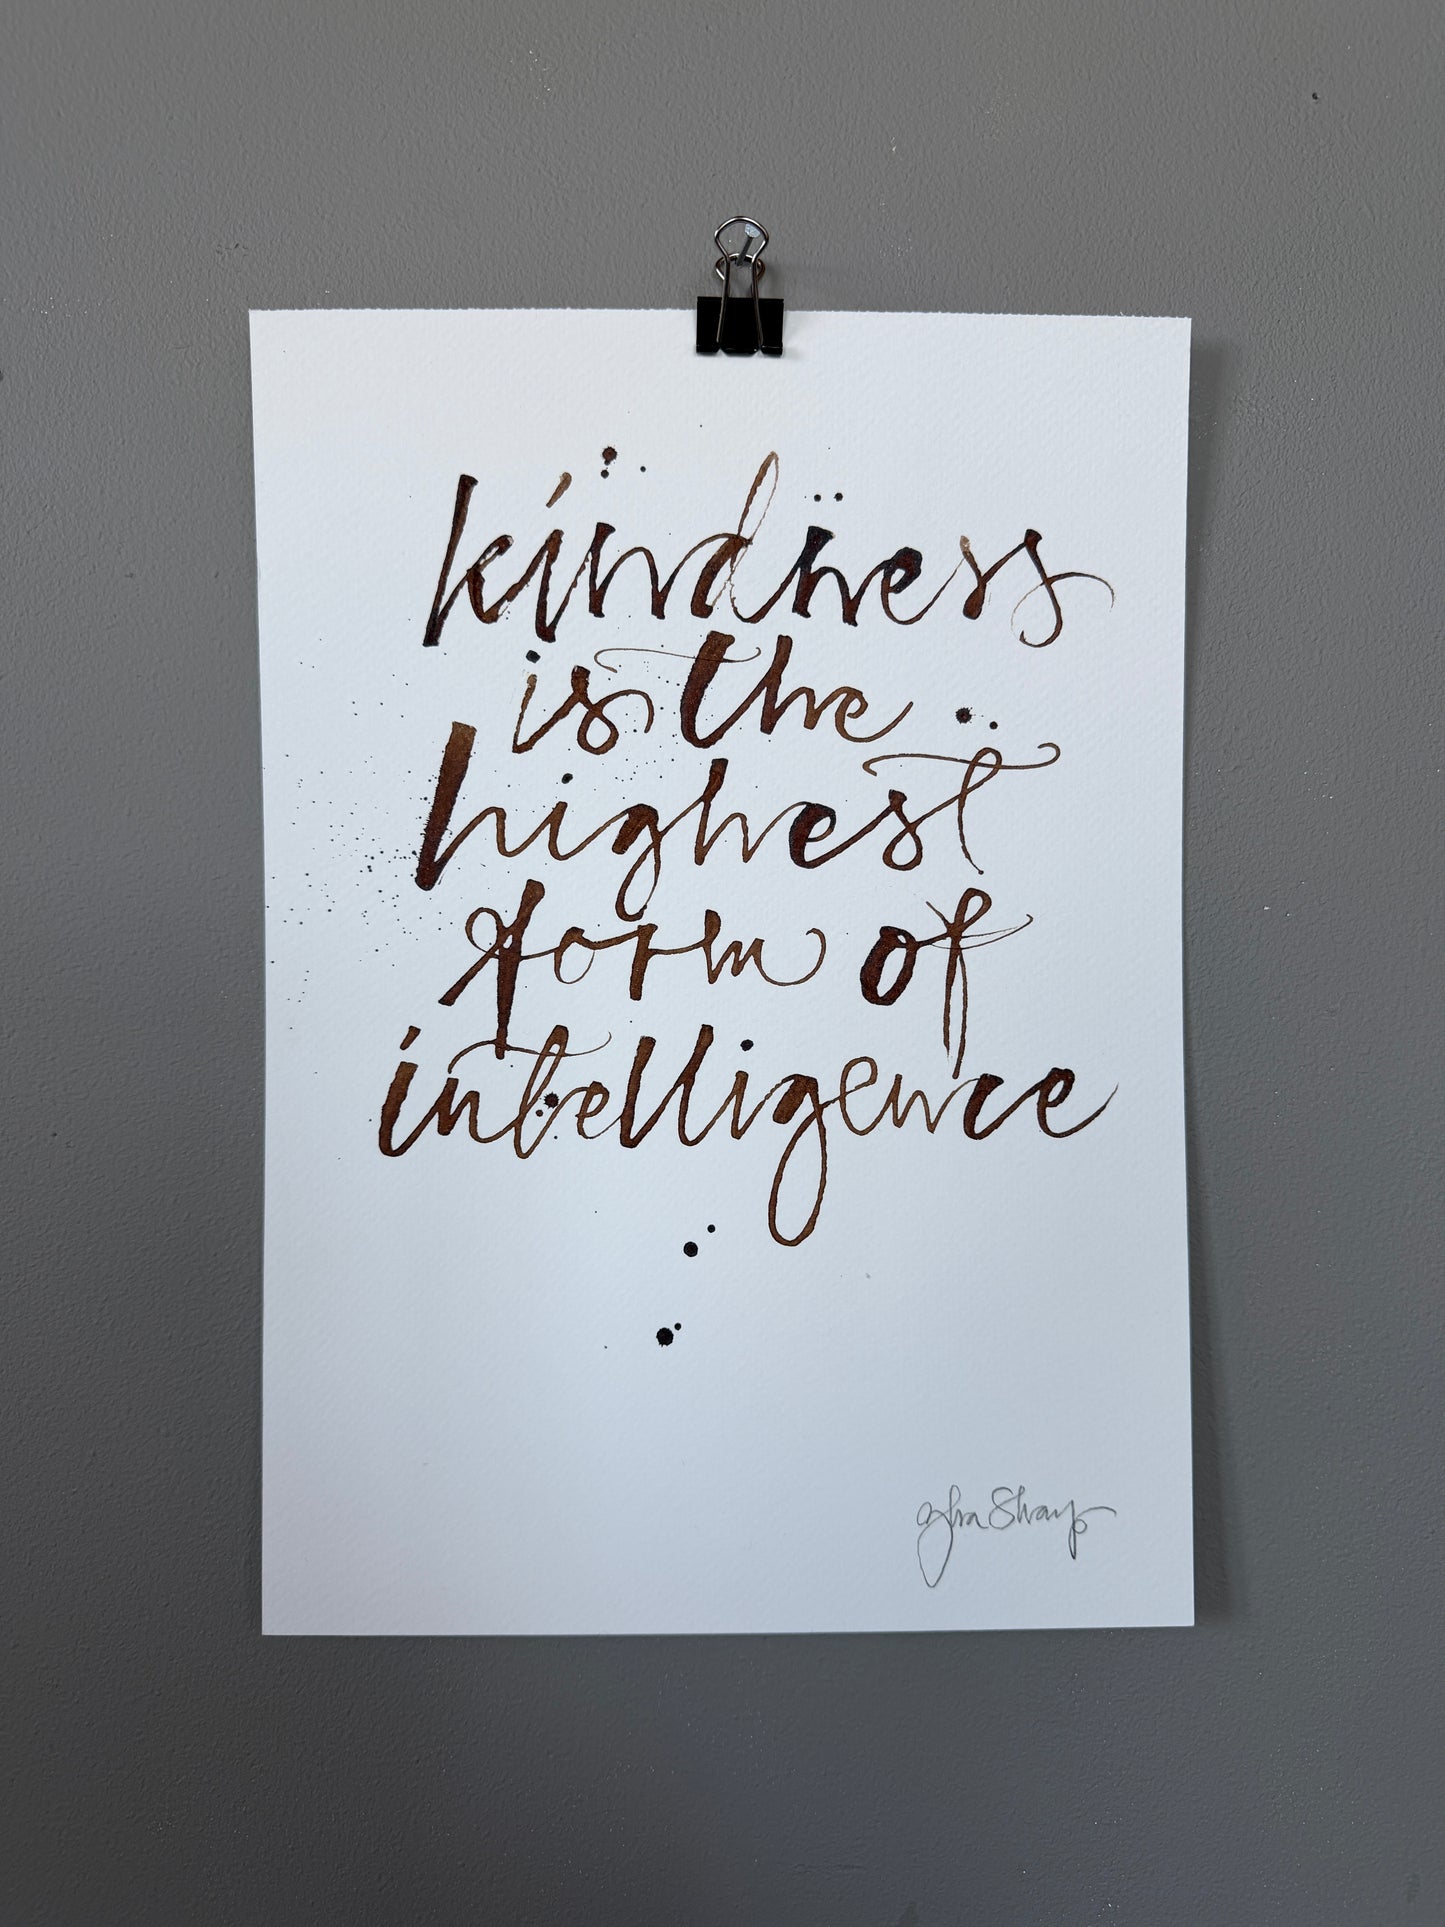 kindness
is the
highest
form of
intelligence